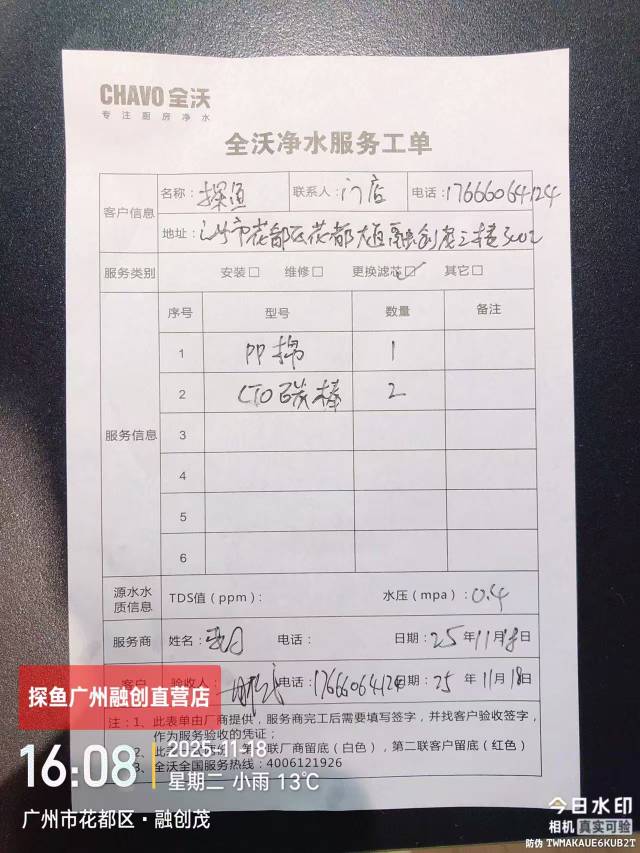 CHAVO 全沃
专注厨房净水
全沃净水服务工单
客户信息 名称：探鱼 联系人：门店 电话：17666064124
地址：广州市花都区花都大道融创茂三楼
服务类别 安装□ 维修□ 更换滤芯☑ 其它□
服务信息 序号 型号 数量 备注
1 PP棉 1
2 CTO碳棒 2
3
4
5
6
源水水质信息 TDS值（ppm）： 水压（mpa）：0.4
服务商 姓名： 电话： 日期：25年11月18日
客户 验收人： 电话：17666064124 日期：25年11月18日
注：1、此表单由厂商提供，服务商完工后需要填写签字，并找客户验收签字，
作为服务验收的凭证；
2、此 第 联厂商留底（白色），第二联客户留底（红色）
3、全沃全国服务热线：4006121926
探鱼广州融创直营店
16:08
2025-11-18
星期二 小雨 13℃
广州市花都区·融创茂
今日水印
相机 真实可验
防伪 TWMAKAUE6KUB2T